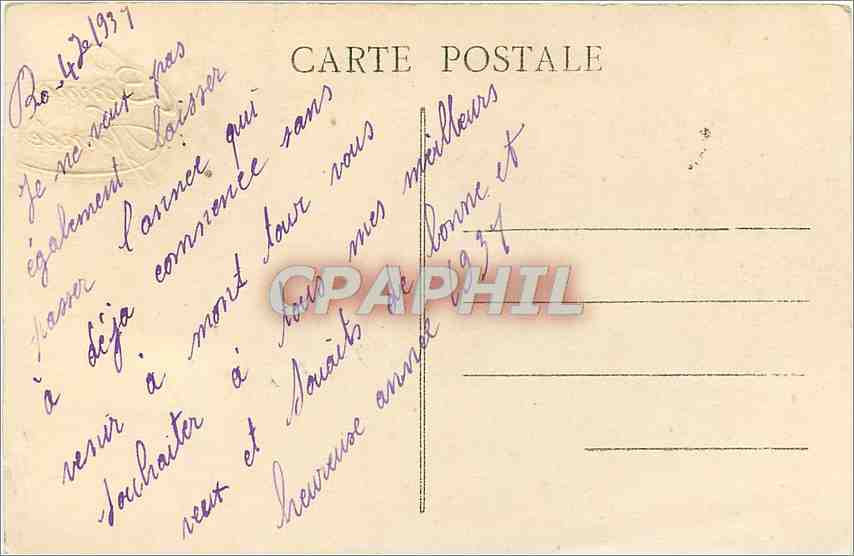 CARTE POSTALE
4 Je 1937
Je ne veux pas
également laisser
passer l'année qui
à déja commence sans
venir à mont tour vous
souhaiter à tous mes meilleurs
veux et souaits de bonne et
heureuse année 1937
CPAPHIL